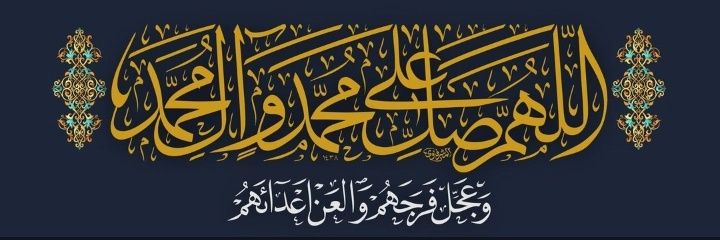 اللّٰهُمَّ صَلِّ عَلىٰ مُحَمَّدٍ وَآلِ مُحَمَّدٍ
١٤٣٨
وَعَجِّل فَرَجَهُم وَالعَن اَعدٰائَهُم